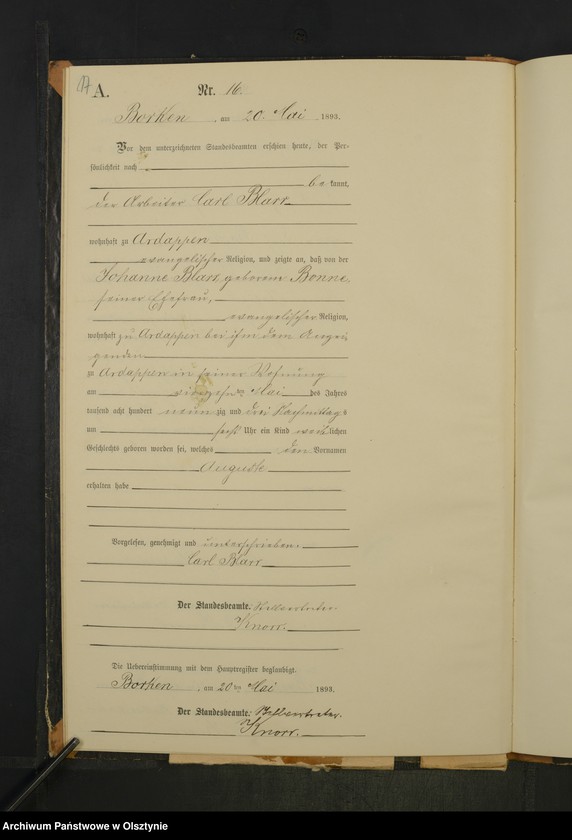 17 A. Nr. 16.
Borken, am 20. Mai 1893.
Vor dem unterzeichneten Standesbeamten erschien heute, der Per-
sönlichkeit nach
be kannt,
der Arbeiter Carl Blarr
wohnhaft zu Ardappen
evangelischer Religion, und zeigte an, daß von der
Johanne Blarr geborenen Bonne,
seiner Ehefrau,
evangelischer Religion,
wohnhaft zu Ardappen bei ihm dem Anzei
genden
zu Ardappen in seiner Wohnung
am vierzehnten Mai des Jahres
tausend acht hundert neun zig und drei Nachmittags
um sechs Uhr ein Kind weiblichen
Geschlechts geboren worden sei, welches den Vornamen
Auguste
erhalten habe
Vorgelesen, genehmigt und unterschrieben.
Carl Blarr
Der Standesbeamte. Stellvertreter.
Knorr.
Die Uebereinstimmung mit dem Hauptregister beglaubigt.
Borken, am 20ten Mai 1893.
Der Standesbeamte. Stellvertreter.
Knorr.
Archiwum Państwowe w Olsztynie